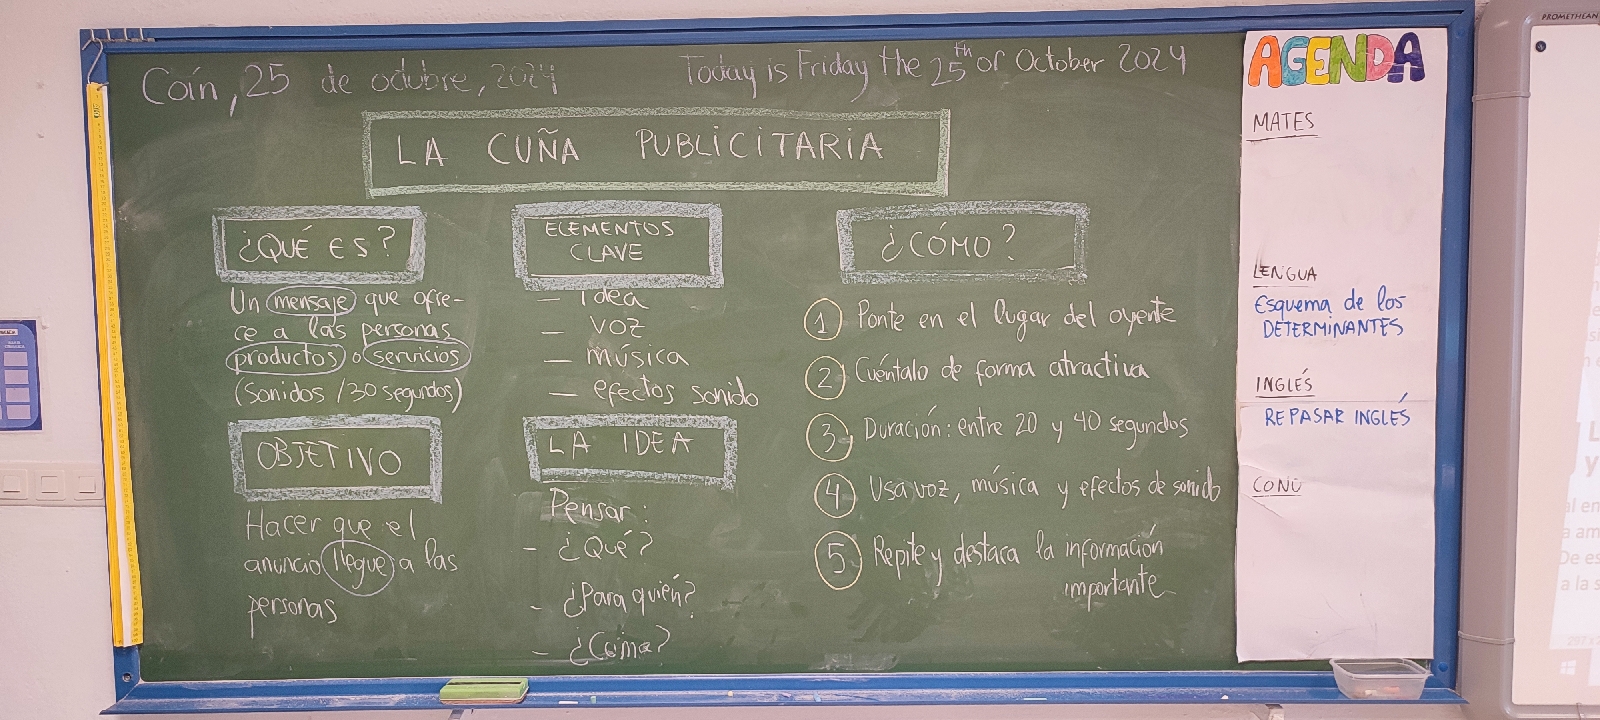 Coín, 25 de octubre, 2024
Today is Friday the 25th of October 2024
LA CUÑA PUBLICITARIA
¿QUÉ ES?
Un mensaje que ofre-
ce a las personas
productos o servicios
(Sonidos /30 segundos)
OBJETIVO
Hacer que el
anuncio llegue a las
personas
ELEMENTOS
CLAVE
— Idea
— voz
— música
— efectos sonido
LA IDEA
Pensar:
- ¿Qué?
- ¿Para quién?
- ¿Cómo?
¿CÓMO?
1 Ponte en el lugar del oyente
2 Cuéntalo de forma atractiva
3 Duración: entre 20 y 40 segundos
4 Usa voz, música y efectos de sonido
5 Repite y destaca la información
importante
AGENDA
MATES
LENGUA
Esquema de los
DETERMINANTES
INGLÉS
REPASAR INGLÉS
CONO
PROMETHEAN